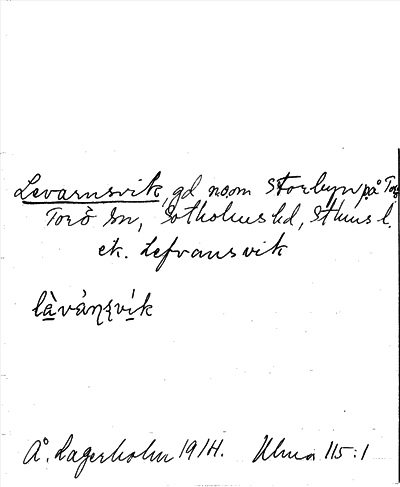 Levarnsvik, gd nom Storbyn på Torö
Torö sn, Sotholms hd, Sthms l.
ek. Lefvansvik
lạ̀vȧṇṣvị́k
Å. Lagerholm 1914. Ulma 115:1